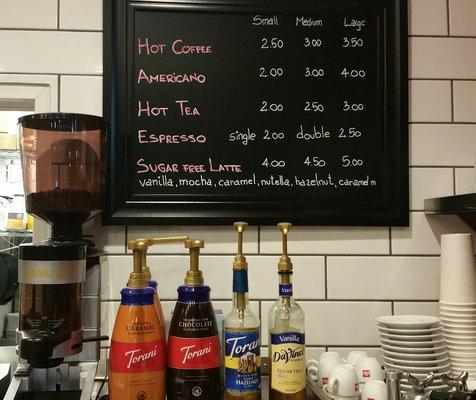 Small Medium Large
Hot Coffee 2.50 3.00 3.50
Americano 2.00 3.00 4.00
Hot Tea 2.00 2.50 3.00
Espresso single 2.00 double 2.50
Sugar free Latte 4.00 4.50 5.00
vanilla, mocha, caramel, nutella, hazelnut, caramel m
CARAMEL
Torani
CHOCOLATE
Torani
Torani
Vanilla
DaVinci
SUGAR FREE